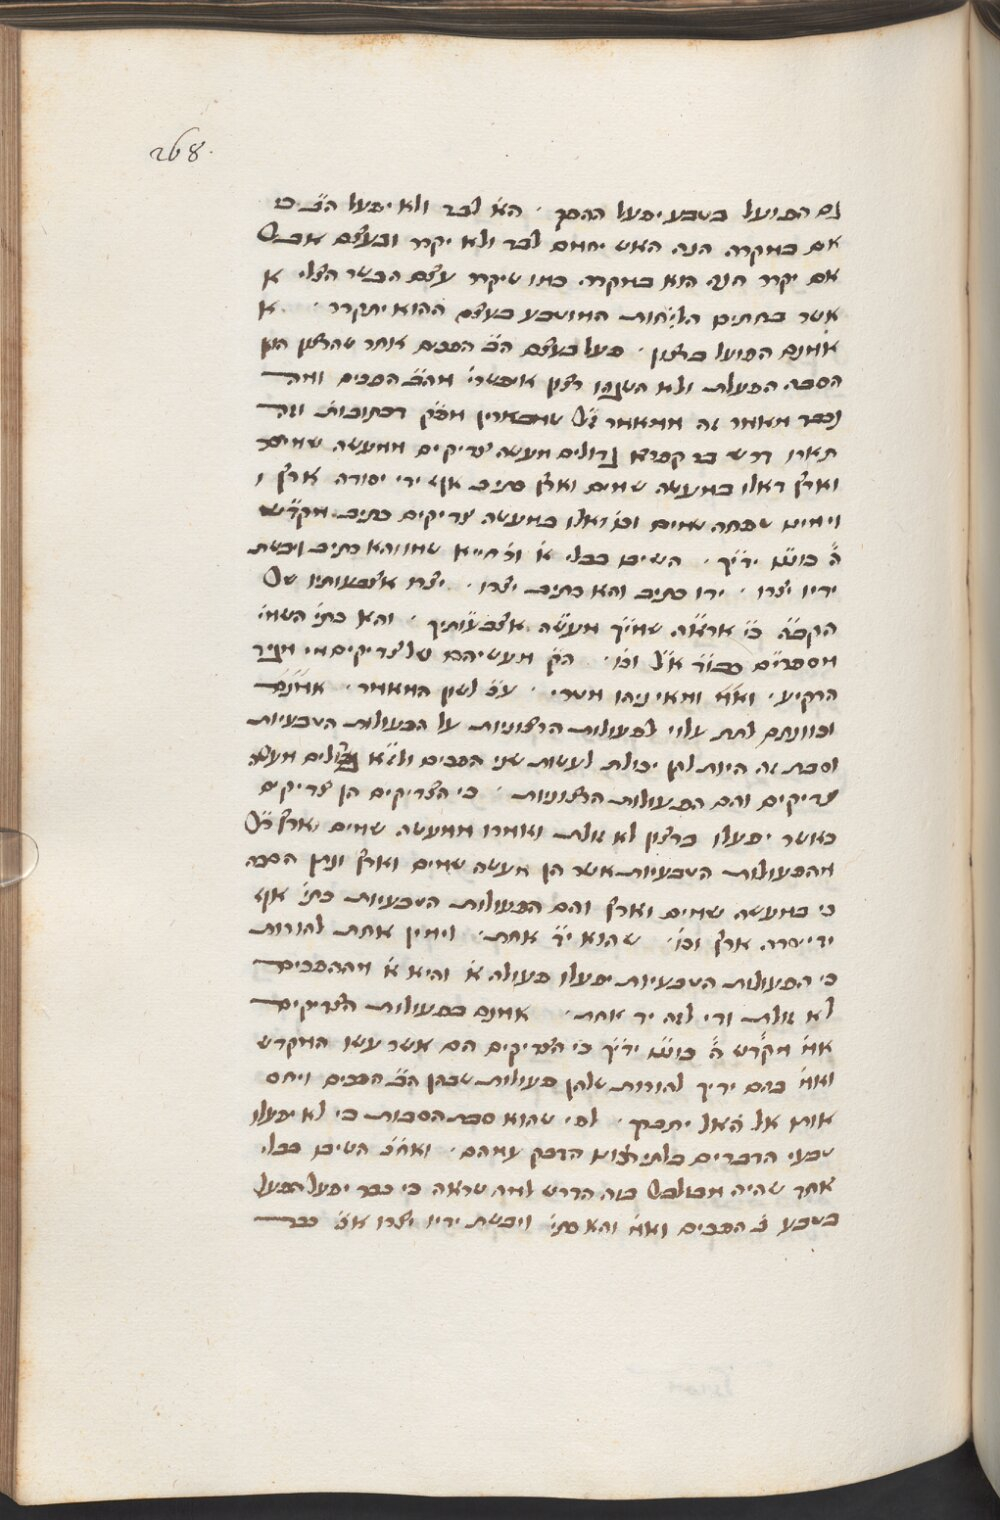 268.
גם הפועל בטבע יפעל ההפך . הא' לבד ולא יפעל הב' כי
אם במקרה הנה האש יחמם לבד ולא יקרר ובעצם אבל
אם יקרר הנה הוא במקרה כמו שיקרר עצם הבשר הצלי א
אשר בחתים הליחות המוטבע בעצם ההוא יתקרר . א
אמנם הפועל ברצון . פעל בעצם הב' הפכים אחר שהרצון הוא
הסבה הפעלת ולא השגהו רצון אפשרי מהב' הפכים ומה
נכבד מאמר זה ממאמר ז"ל שמבארין מפ"ק דכתובות וזה
תארו דרש בר קפרא גדולים מעשה צדיקים ממעשה שמים
וארץ דאלו במעשה שמים וארץ כתיב אף ידי יסדה ארץ ו
וימיני טפחה שמים וכו' ואלו במעשה צדיקים כתיב מקדש
ה' כוננו ידיך . השיבו בבלי א' ור' חייא שמו והא כתיב ויבשת
ידיו יצרו . ידו כתיב והא כתיב יצרו . יצרו אצבעותיו של
הקב"ה כי אראה שמיך מעשה אצבעותיך . והא כתי' השמי'
מספרים כבוד אל וכו' . הק' מעשיהם של צדיקים מי מגיד
הרקיע . ואו' ומאי ניהו מטרי . ע"כ לשון המאמר . אמנם
וכוונתם לתת עלוי לפעולות הרצוניות על הפעולות הטבעיות
וסבת זה היות להן יכולת לעשות שני הפכים ולז"א גדולים מעשה
צדיקים והם הפעולות הרצוניות . כי הצדיקים הן צדיקים
כאשר יפעלו ברצון לא זולת ואמרו ממעשה שמים וארץ ר"ל
מהפעולות הטבעיות אשר הן מעשה שמים וארץ ונתן הסבה
כי במעשה שמים וארץ והם הפעולות הטבעיות כתי' אף
ידי יסדה ארץ וכו' . שהוא יד אחת . וימין אחת להורות
כי הפעולות הטבעיות יפעלו פעולה א' והיא א' מההפכים
לא זולת ודי לזה יד אחת . אמנם בפעולות הצדיקים
אמ' מקדש ה' כוננו ידיך כי הצדיקים הם אשר עשו המקדש
ואמ' בהם ידיך להורות שלהן פעולות שבהן הב' הפכים ויחס
אותו אל האל יתברך . לפי שהוא סבת הסבות כי לא יפעלו
טבעי הדברים בלתי רצונו הדבק עמהם . ואח"כ השיבו בבלי
אחד שהיה מבולבל בזה הדרש למה שראה כי כבר יפעל הפעל
בטבע ב' הפכים ואמ' והא כתי' ויבשת ידיו יצרו א"כ כבר